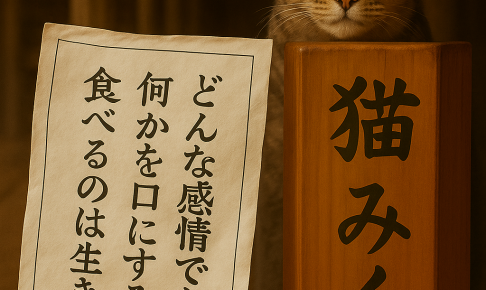 猫み
どんな感情で
何かを口にす
食べるのは生き